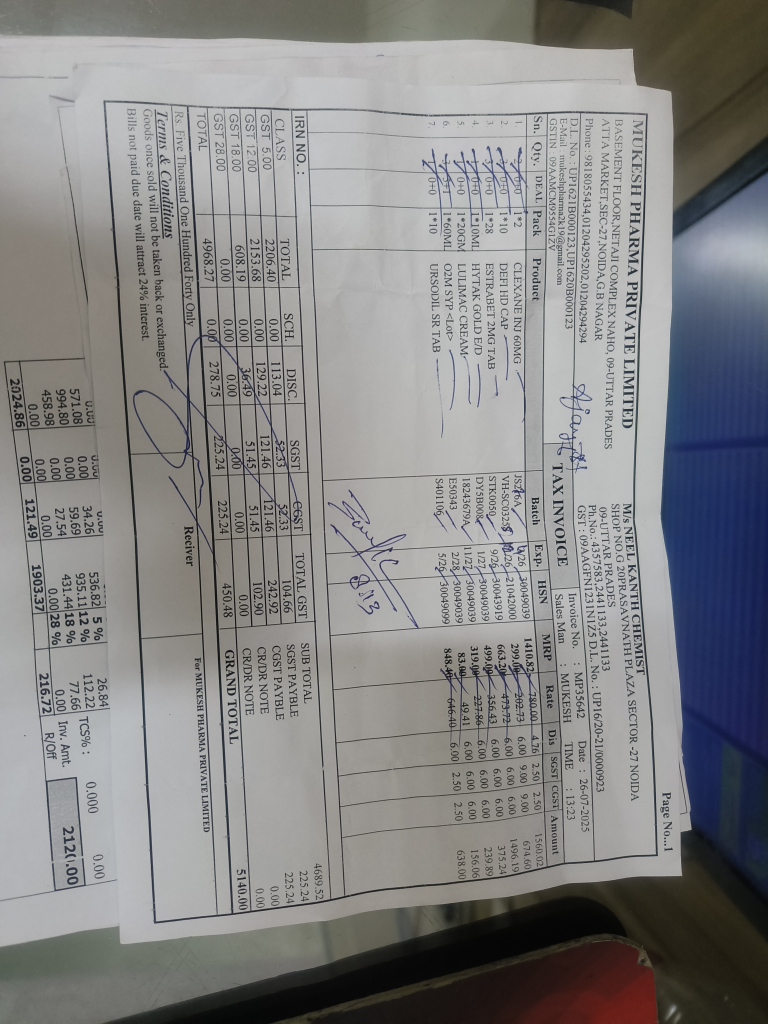 Page No...1
MUKESH PHARMA PRIVATE LIMITED
BASEMENT FLOOR,NETAJI COMPLEX NAHO, 09-UTTAR PRADES
ATTA MARKET,SEC-27,NOIDA,G.B NAGAR
Phone : 9818055434,01204295202,01204294294
D.L. No.: UP1621B000123,UP1620B000123
E-Mail mukeshpharma2k19@gmail.com
GSTIN 09AAMCM9554G1ZV
M/s NEEL KANTH CHEMIST
SHOP NO.G 20PRASAVNATH PLAZA SECTOR -27 NOIDA
09-UTTAR PRADES
Ph.No.: 4357583,2441133,2441133
GST : 09AAGFN1231N1Z5 D.L. No. : UP16/20-21/0000923
TAX INVOICE
Invoice No. : MP35642 Date : 26-07-2025
Sales Man : MUKESH TIME : 13:23
Sn. Qty. DEAL Pack Product Batch Exp. HSN MRP Rate Dis SGST CGST Amount
1. 1*2 CLEXANE INJ 60MG 30049039 1410.82 780.00 4.76 2.50 2.50 1560.02
2. 0+0 1*10 DEFI HD CAP 21042000 299.00 202.73 6.00 9.00 9.00 674.60
3. 0+0 1*28 ESTRABET 2MG TAB STK0050 9/26 30043919 473.72 6.00 6.00 6.00 1496.19
4. 0+0 1*10ML HYTAK GOLD E/D DY5B008 1/27 30049039 499.00 356.43 6.00 6.00 6.00 375.24
5. 0+0 1*20GM LULIMAC CREAM 18243679A 11/27 30049039 319.00 227.86 6.00 6.00 6.00 239.89
6. 1*60ML O2M SYP <Lot> E50343 2/28 30049039 83.00 49.41 6.00 6.00 6.00 156.06
7. 0+0 1*10 URSODIL SR TAB S401106 5/26 30049099 848.40 646.40 6.00 2.50 2.50 638.00
IRN NO. :
CLASS TOTAL SCH. DISC. SGST CGST TOTAL GST
GST 5.00 2206.40 0.00 113.04 52.33 52.33 104.66
GST 12.00 2153.68 0.00 129.22 121.46 121.46 242.92
GST 18.00 608.19 0.00 36.49 51.45 51.45 102.90
GST 28.00 0.00 0.00 0.00 0.00 0.00 0.00
TOTAL 4968.27 0.00 278.75 225.24 225.24 450.48
SUB TOTAL 4689.52
SGST PAYBLE 225.24
CGST PAYBLE 225.24
CR/DR NOTE 0.00
CR/DR NOTE 0.00
GRAND TOTAL 5140.00
Rs. Five Thousand One Hundred Forty Only
Terms & Conditions
Goods once sold will not be taken back or exchanged.
Bills not paid due date will attract 24% interest.
Reciver
For MUKESH PHARMA PRIVATE LIMITED
34.26 536.82 5 % 26.84
571.08 0.00 59.69 935.11 12 % 112.22 TCS% : 0.000 0.00
994.80 0.00 27.54 431.44 18 % 77.66
458.98 0.00 0.00 0.00 28 % 0.00 Inv. Amt.
2024.86 0.00 121.49 1903.37 216.72 R/Off